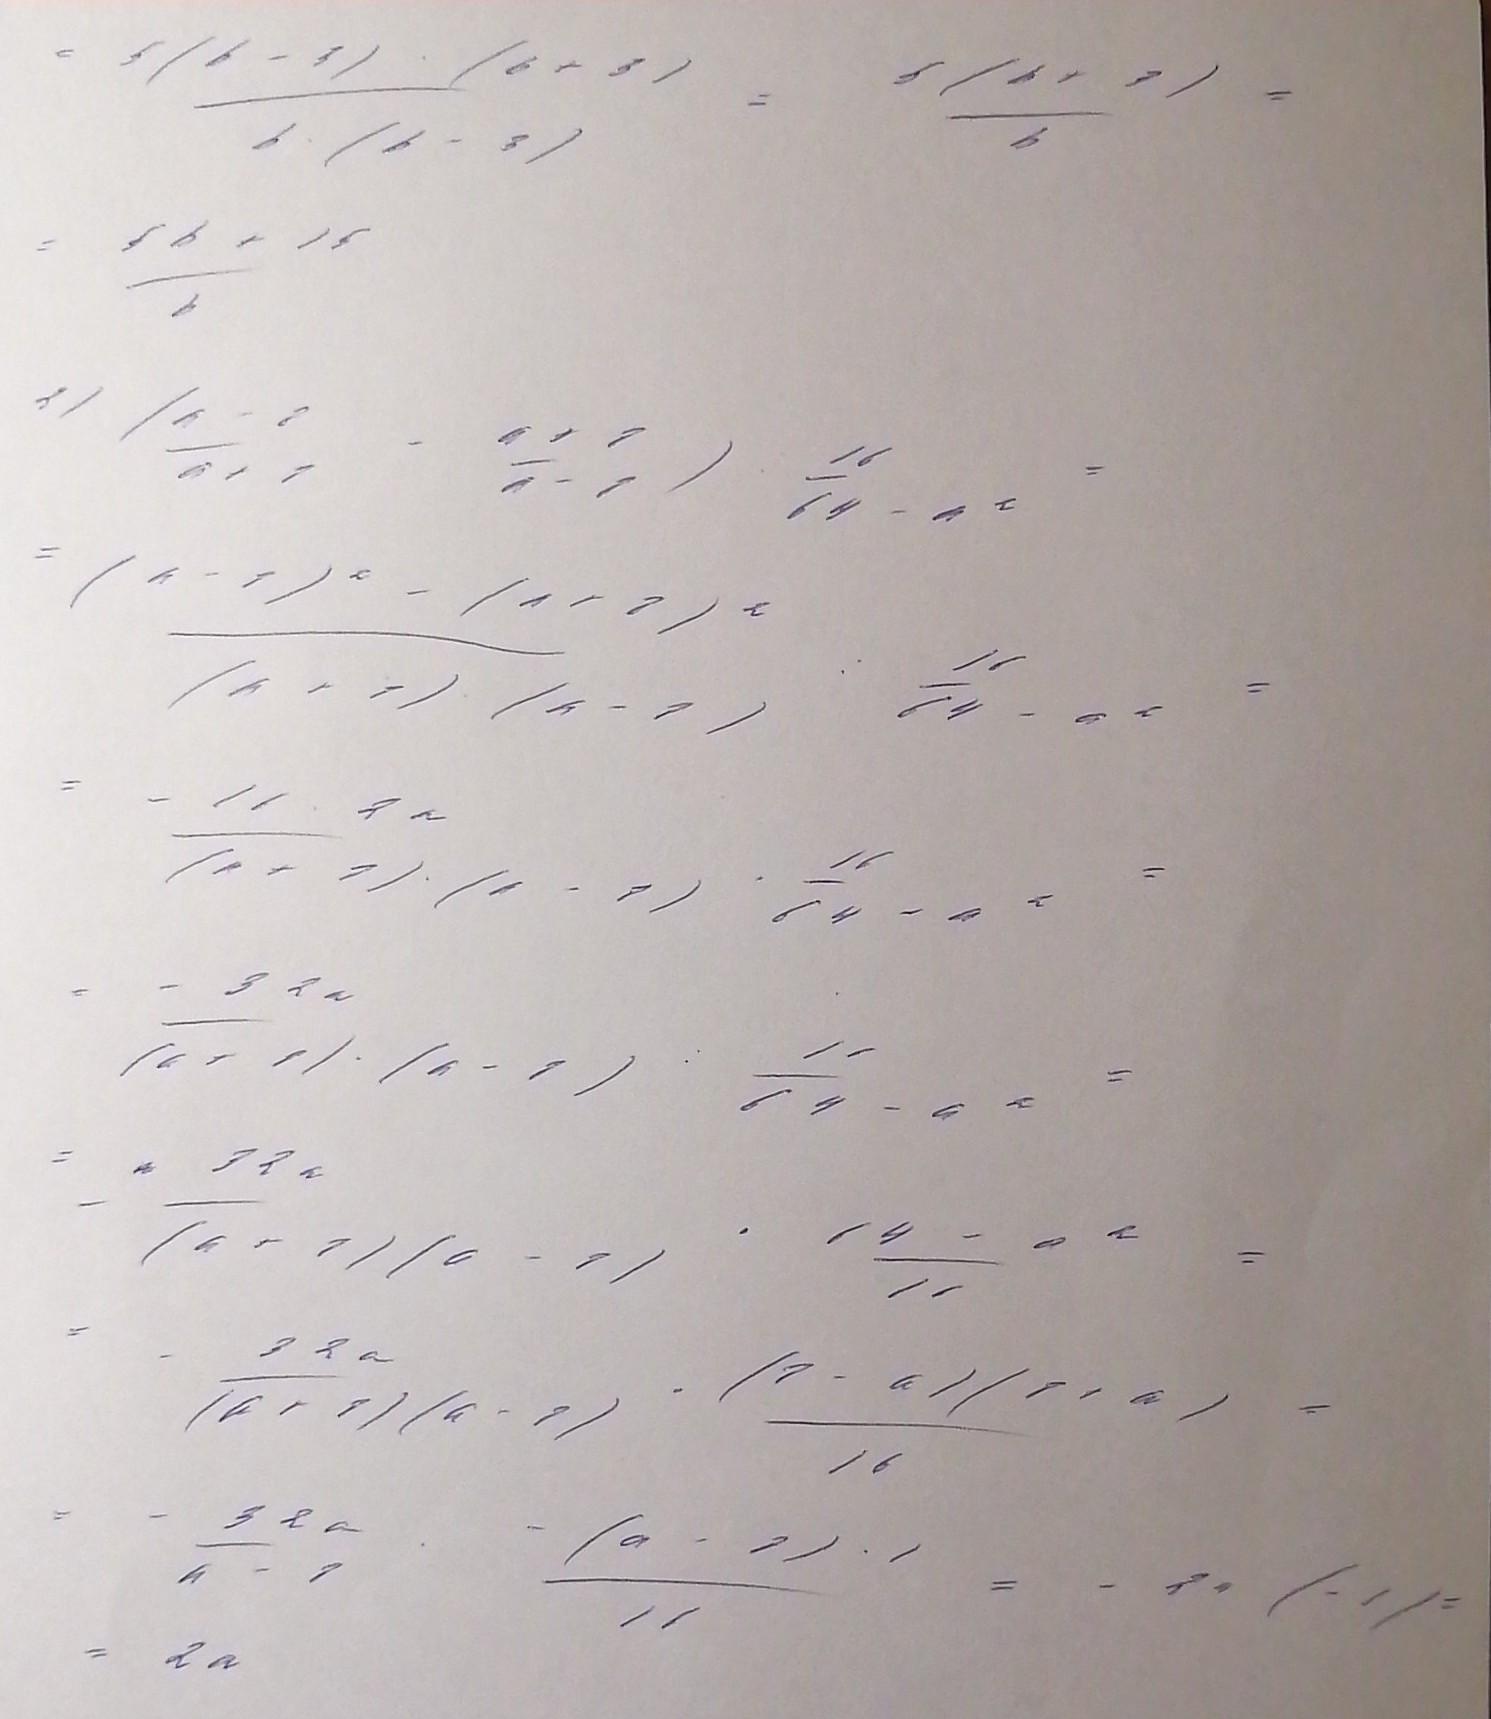 = 5(b - 3) · (b + 3) / b · (b - 3) = 5(b + 3) / b =
= 5b + 15 / b
2) (a - 8 / a + 8 - a + 8 / a - 8) : 16 / 64 - a² =
= (a - 8)² - (a + 8)² / (a + 8) · (a - 8) : 16 / 64 - a² =
= - 16 · 2a / (a + 8) · (a - 8) : 16 / 64 - a² =
= - 32a / (a + 8) · (a - 8) : 16 / 64 - a² =
= - 32a / (a + 8)(a - 8) · 64 - a² / 16 =
= - 32a / (a + 8)(a - 8) · (8 - a)(8 + a) / 16 =
= - 32a / a - 8 · - (a - 8) · 1 / 16 = - 2a (-1) =
= 2a